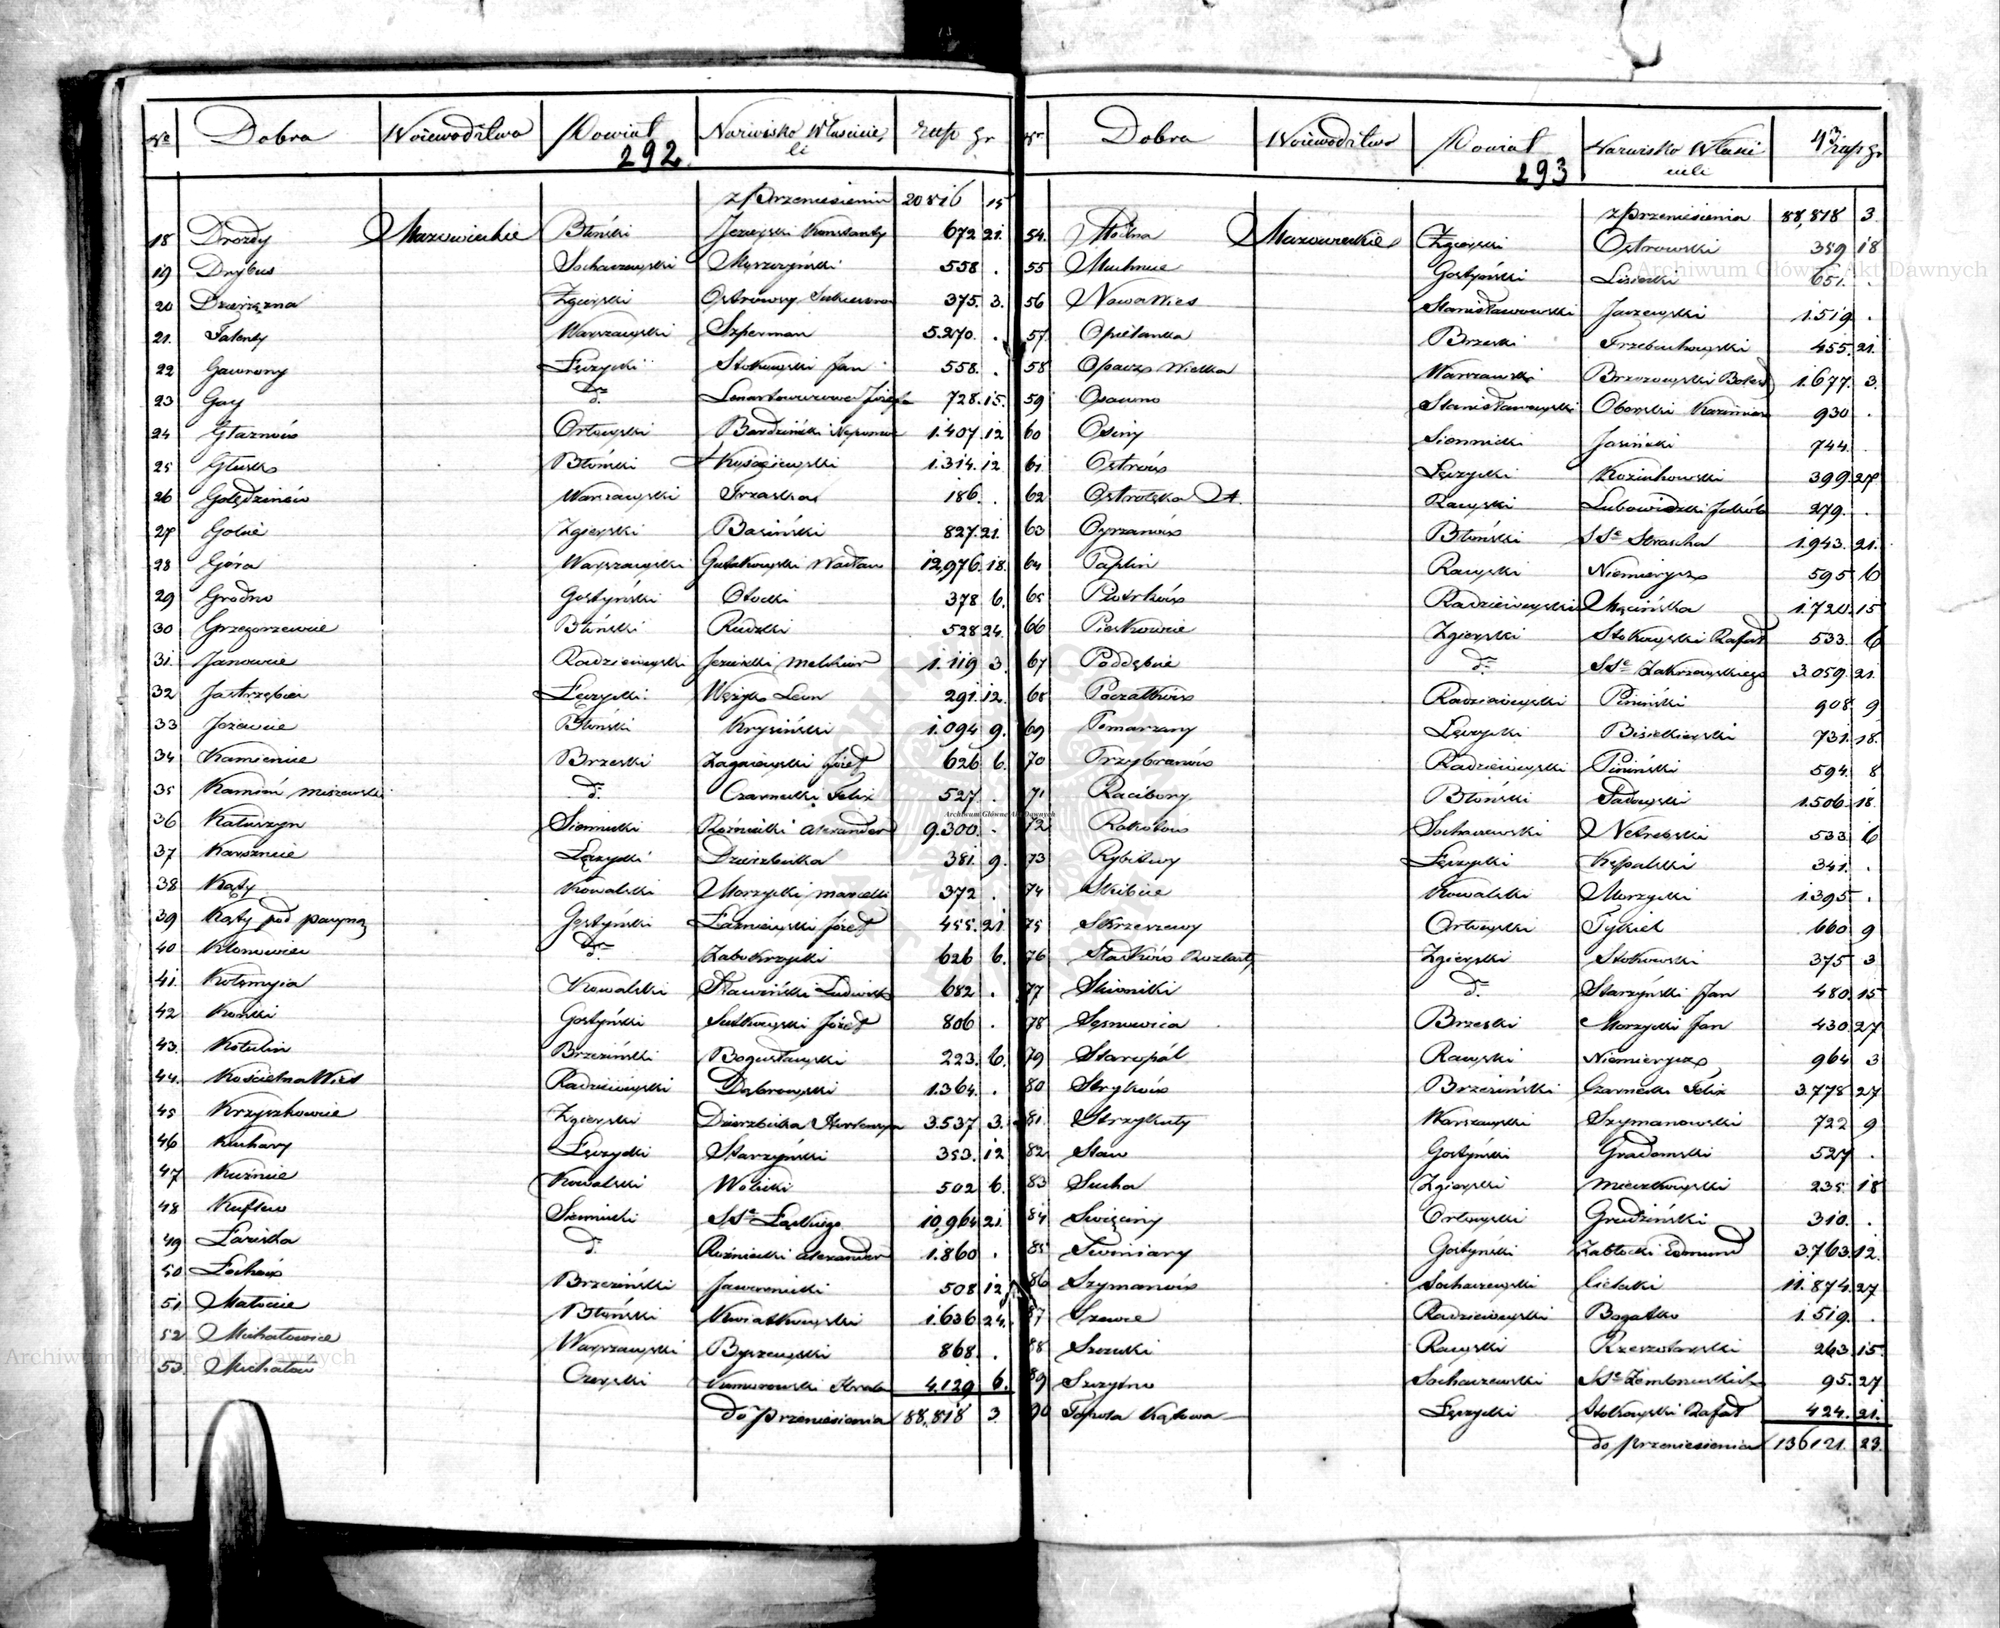 Nº Dobra Woiewodztwo Powiat Nazwisko Właściciela rup gr
292
z przeniesienia 20816 15
18 Drozdy Mazowieckie Błoński Jezierski Konstanty 672 21.
19 Drybus Sochaczewski Męszczyński 558 .
20 Dzierżązna Zgierski Ostrowscy Sukcessor 375. 3.
21. Falenty Warszawski Szperman 5.270. .
22 Gawrony Łęczycki Stokowski Jan 558. .
23 Gay dº Lenartowiczowa Józefa 728. 15.
24 Głaznów Orłowski Bardziński Nepomuc 1.407. 12
25 Głusk Błoński 1.314. 12
26 Golędzinów Warszawski Trzaska 186. .
27 Golice Zgierski Basiński 827. 21.
28 Góra Warszawski Gutakowski Wacław 12,976. 18.
29 Grodno Gostyński Otocki 378 6.
30 Grzegorzewice Błoński Rudzki 528 24.
31. Janowice Radzieiewski Melchior 1.119 3.
32 Jastrzębia Łęczycki Wężyk Leon 291. 12.
33 Józewice Błoński Krysiński 1.094 9.
34 Kamienie Brzeski Zagaiewski Józef 626 6.
35 Kamień dº Czarnecki Felix 527 .
36 Kałuszyn Siennicki Rożniecki Alexander 9.300. .
37 Karsznice Łęczycki Dzierzbicka 381. 9.
38 Kąty Kowalski Morzycki Marcelli 372 .
39 Kąty pod Gostyński Łaźniewski Józef 455. 21
40 Klonowiec dº Zabokrzycki 626 6.
41. Kołomyia Kowalski Sławiński Ludwik 682 .
42 Konki Gostyński Sulkowski Józef 806 .
43. Kotulin Brzeziński Bogusławski 223. 6.
44. Kościelna Wieś Radzieiewski Dąbrowski 1.364. .
45 Krzyszkowice Zgierski Dzierzbicka 3.537 3.
46 Kuchary Łęczycki Starzyński 353. 12
47 Kuźnice Kowalski Wolicki 502 6.
48 Kuflew Siennicki SSº Łąckiego 10,964 21
49 Łaziska dº Rożniecki Alexander 1.860 .
50 Łochów Brzeziński Jawornicki 508 12
51. Małocice Błoński Kwiatkowski 1.636 24.
52 Michałowice Warszawski Byszewski 868. .
53. Michałów Czerski 4.129 6.
do przeniesienia 88,818 3.
Nr Dobra Woiewodztwo Powiat Nazwisko Właściciela rup gr
293
z przeniesienia 88,818 3.
54. Młodna Mazowieckie Zgierski Ostrowski 359 18
55 Muchnice Gostyński Lisiecki 651. .
56 Nowa Wies Stanisławowski Jaczewski 1.519 .
57. Opielanka Brzeski Trzebuchowski 455. 21.
58 Opacz Wielka Warszawski Brzozowski 1.677. 3.
59 Osowno Stanisławowski Oborski Kazimierz 930 .
60 Osiny Siennicki Jasiński 744. .
61 Ostrów Łęczycki Kozuchowski 399 27
62 Ostrołęka A. Rawski Lubowidzki Jakób 279. .
63 Oyrzanów Błoński SSº Strascha 1.943. 21.
64 Paplin Rawski Niemierycz 595 6
65 Piotrków Radzieiewski Męcińska 1.720. 15
66 Piaskowice Zgierski Stokowski Rafał 533. 6
67 Poddębice dº SSº Zakrzewskiego 3.059. 21.
68 Poczałków Radzieiewski Piniński 908 9
69 Pomarzany Łęczycki Bisialkiewski 731. 18.
70 Przybranów Radzieiewski Piniński 594. 8
71 Racibory Błoński Sadowski 1.506. 18.
72 Rokotów Sochaczewski Netrebski 533 6
73 Rybitwy Łęczycki Kęspalski 341. .
74 Skibice Kowalski Morzycki 1.395 .
75 Skrzeszewy Orłowski Tykiel 660 9
76 Sładków Rozlazły Zgierski Stokowski 375 3
77 Słomniki dº Starzyński Jan 480. 15
78 Sosnowica Brzeski Morzycki Jan 430. 27
79 Staropol Rawski Niemierycz 964 3
80 Stryków Brzeziński Czarnecki Felix 3.778 27
81 Strzykuły Warszawski Szymanowski 722 9
82 Staw Gostyński Gradomski 527 .
83 Sucha Zgierski Mieczkowski 235. 18
84 Święciny Orłowski Grudziński 310. .
85 Świniary Gostyński Zabłocki Edmund 3.763. 12.
86 Szymanów Sochaczewski Cielecki 11.874. 27
87 Szewce Radzieiewski Bogatko 1.519. .
88 Szczuki Rawski Rzeszotarski 263. 15.
89 Szczytno Sochaczewski SSº 95. 27
90 Topola Kątowa Łęczycki Stokowski Rafał 424. 21.
do przeniesienia 136121. 23.
Archiwum Główne Akt Dawnych
Archiwum Główne Akt Dawnych
Archiwum Główne Akt Dawnych